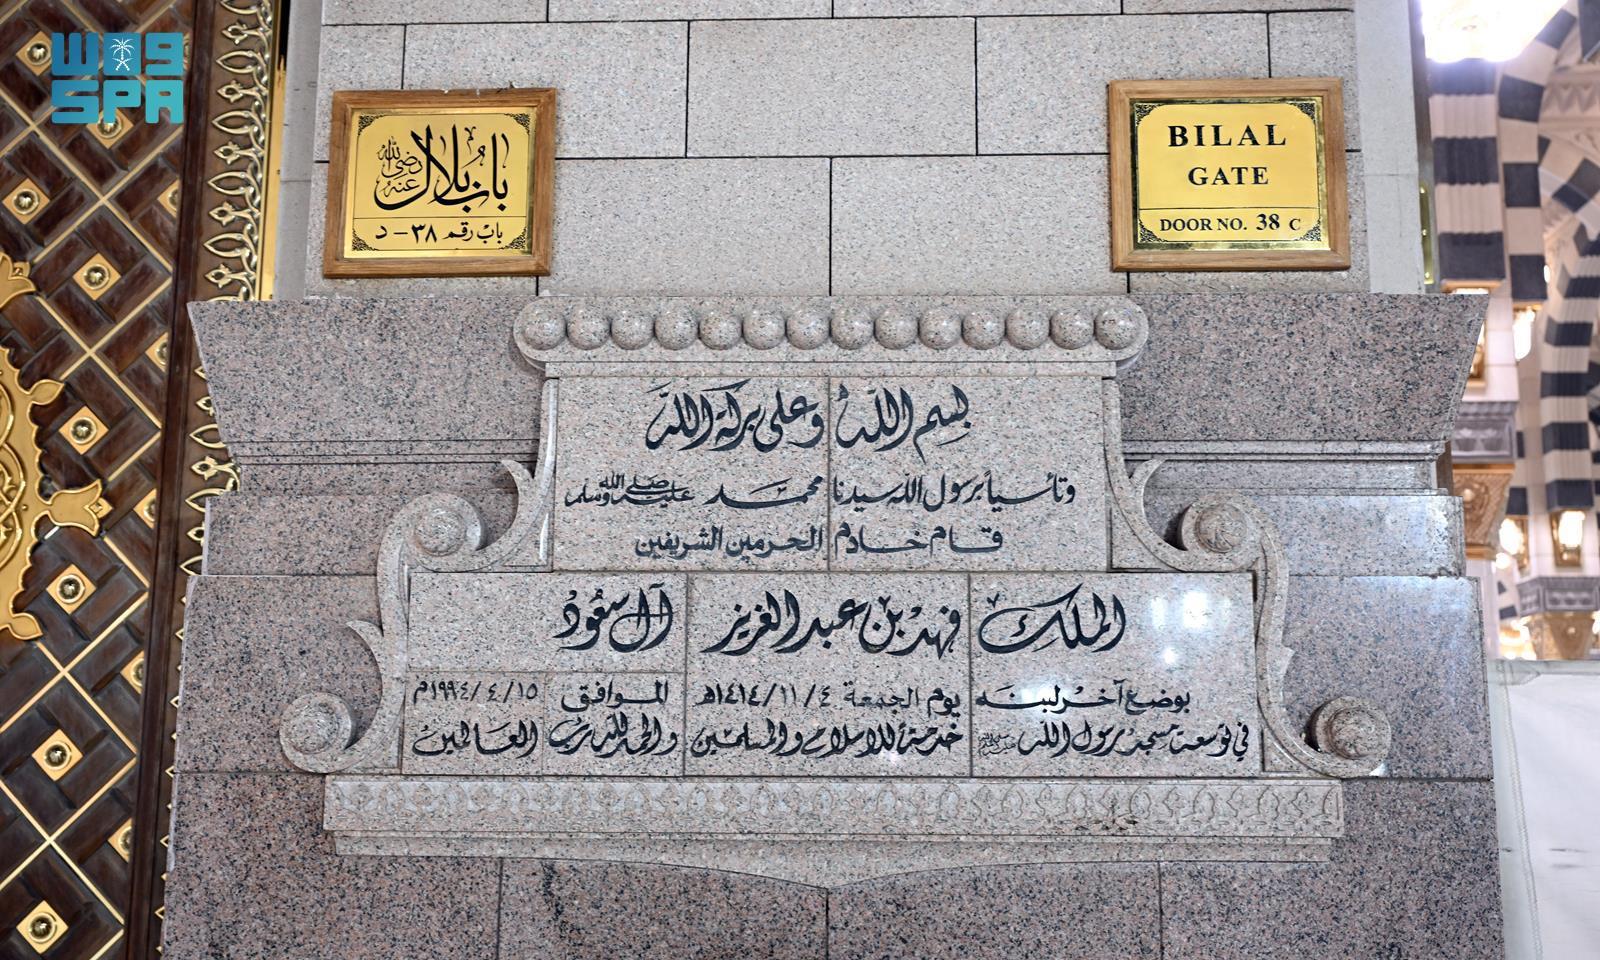 واس
SPA
باب بلال
رضي الله عنه
باب رقم ٣٨ - د
BILAL
GATE
DOOR NO. 38 C
بسم الله وعلى بركة الله
وتأسياً برسول الله سيدنا محمد صلى الله عليه وسلم
قام خادم الحرمين الشريفين
الملك فهد بن عبد العزيز آل سعود
بوضع آخر لبنه يوم الجمعة ١٤١٤/١١/٤هـ الموافق ١٩٩٤/٤/١٥م
في توسعة مسجد رسول الله ﷺ خدمة للاسلام والمسلمين والحمد لله رب العالمين